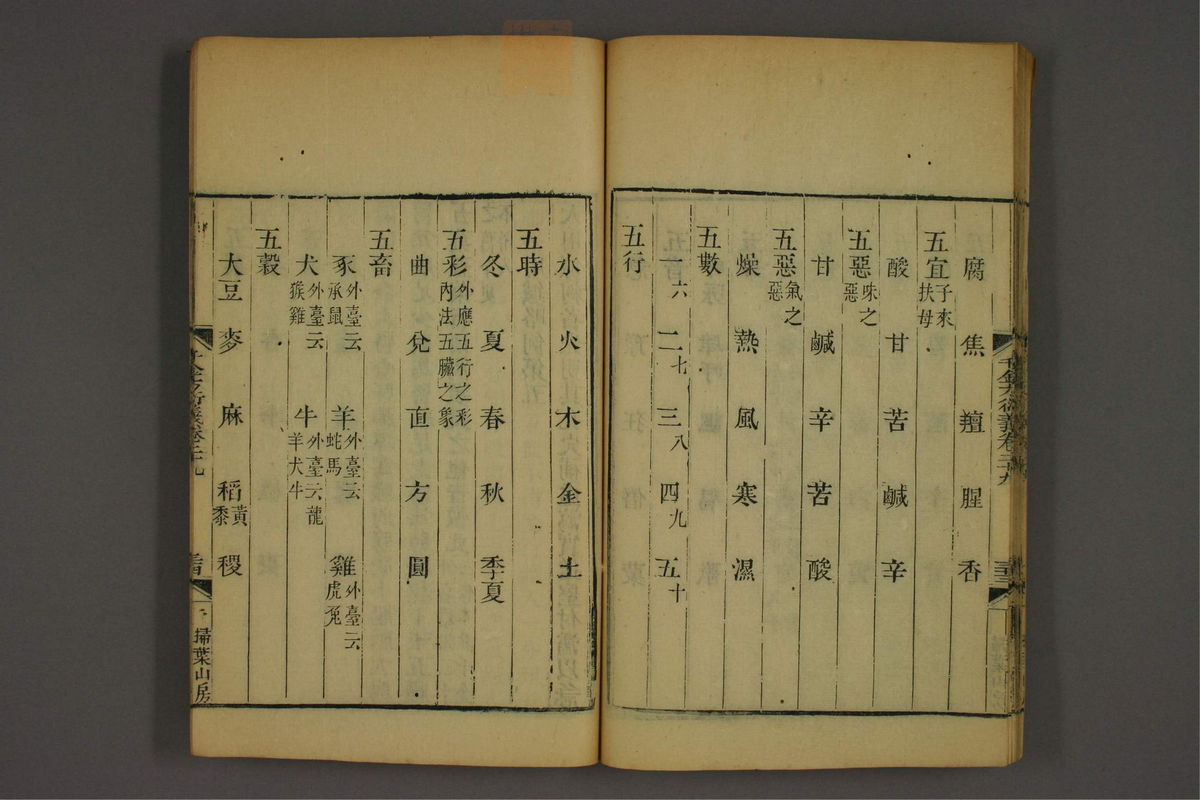 腐 焦 羶 腥 香
五宜 子來扶母
酸 甘 苦 鹹 辛
五惡 味之惡
甘 鹹 辛 苦 酸
五惡 氣之惡
燥 熱 風 寒 濕
五數
六 二七 三八 四九 五十
五行
水 火 木 金 土
五時
冬 夏 春 秋 季夏
五彩 外應五行之彩內法五臟之象
曲 兌 直 方 圓
五畜
豕 外臺云承鼠 羊 外臺云蛇馬 雞 外臺云虎兔
犬 外臺云猴雞 牛 外臺云龍羊犬牛
五穀
大豆 麥 麻 稻 黃黍 稷
千金方衍義卷二十九
掃葉山房